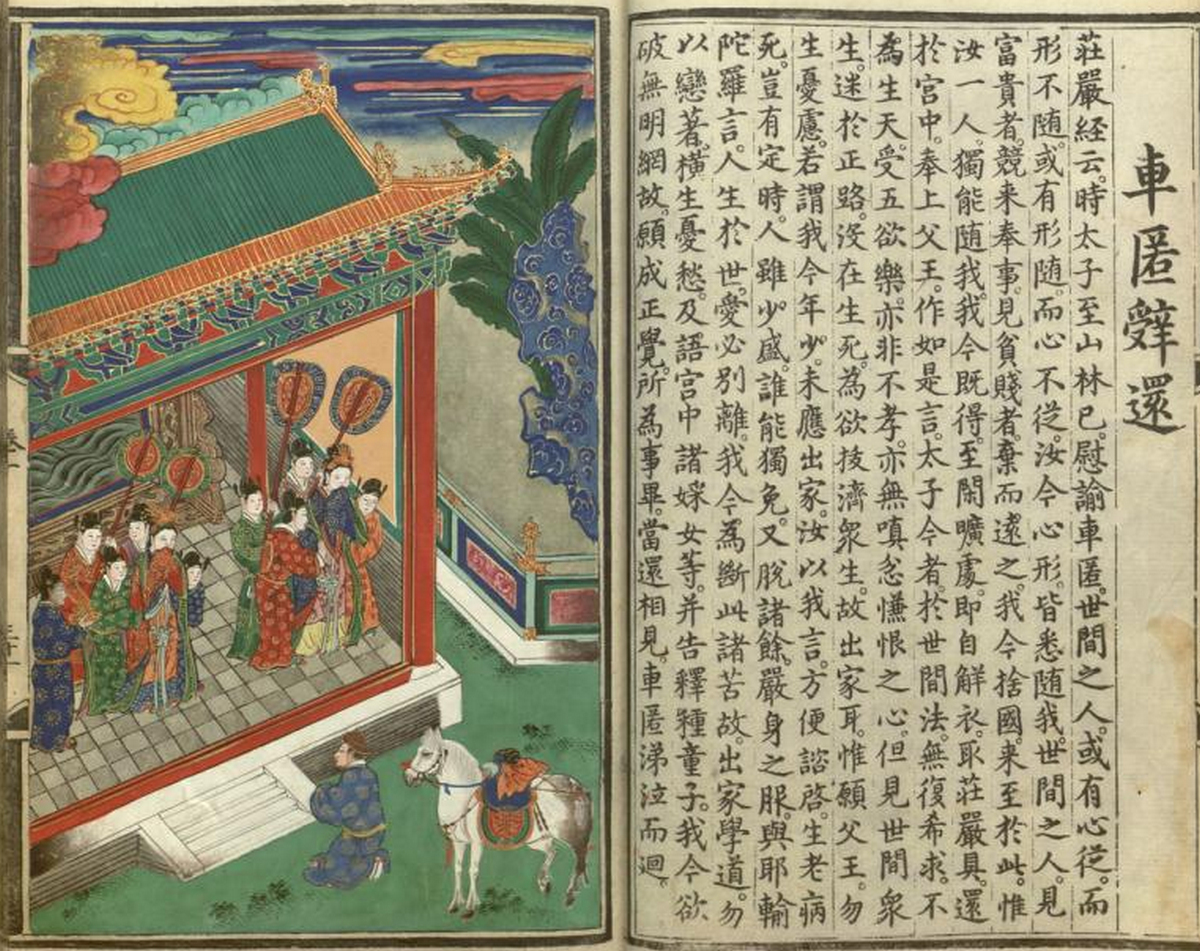 車匿辭還
莊嚴経云。時太子至山林已。慰諭車匿。世間之人。或有心從。而
形不随。或有形随。而心不從。汝今心形。皆悉随我。世間之人。見
富貴者。競来奉事。見貧賤者。棄而遠之。我今捨國。来至於此。惟
汝一人。獨能随我。我今既得。至閑曠處。即自解衣。取莊嚴具。還
於宮中。奉上父王。作如是言。太子今者。於世間法。無復希求。不
為生天。受五欲樂。亦非不孝。亦無嗔忿慊恨之心。但見世間衆
生。迷於正路。没在生死。為欲拔濟衆生。故出家耳。惟願父王。勿
生憂慮。若謂我今年少。未應出家。汝以我言。方便諮啓。生老病
死。豈有定時。人雖少盛。誰能獨免。又脫諸餘。嚴身之服。與耶輸
陀羅言。人生於世。愛必別離。我今為斷此諸苦故。出家學道。勿
以戀著。橫生憂愁。及語宮中諸婇女等。并告釋種童子。我今欲
破無明網故。願成正覺。所為事畢。當還相見。車匿涕泣而迴。